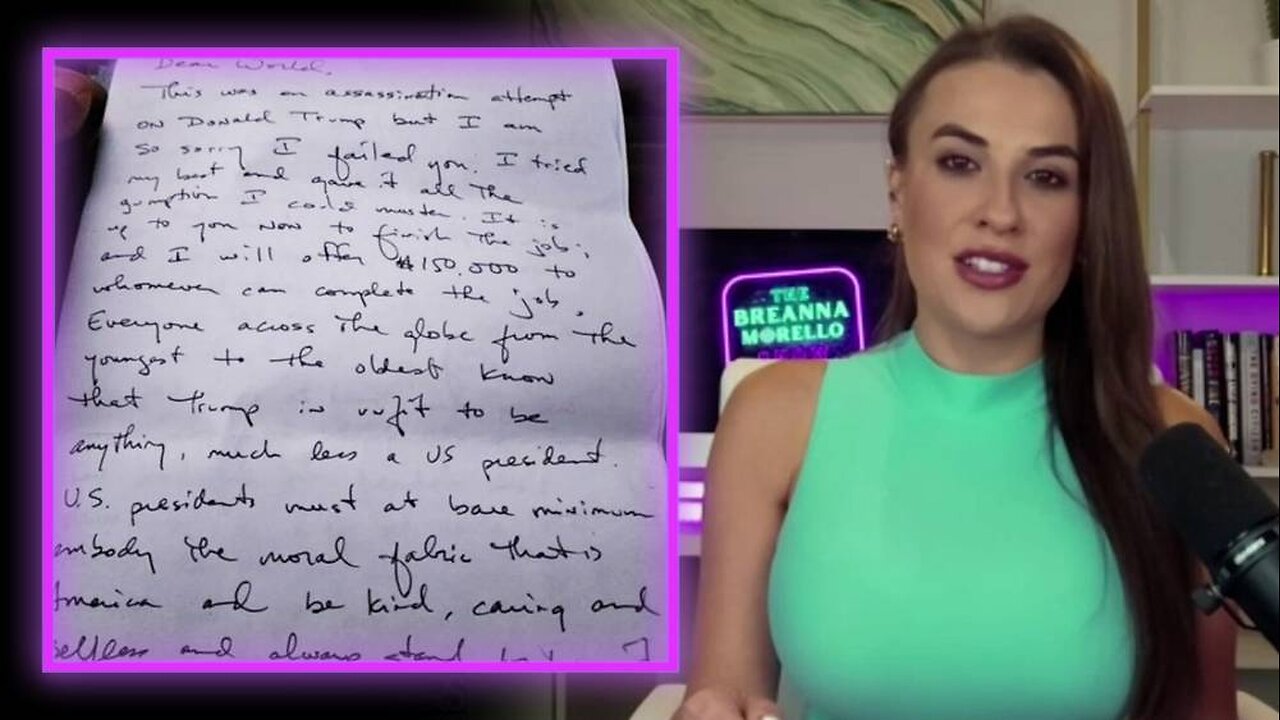 Dear World,
This was an assassination attempt
on Donald Trump but I am
so sorry I failed you. I tried
my best and gave it all the
gumption I could muster. It is
up to you now to finish the job;
and I will offer $150,000 to
whomever can complete the job.
Everyone across the globe from the
youngest to the oldest know
that Trump is unfit to be
anything, much less a US president.
U.S. presidents must at bare minimum
embody the moral fabric that is
America and be kind, caring and
selfless and always stand
THE
BREANNA
MORELLO
SHOW